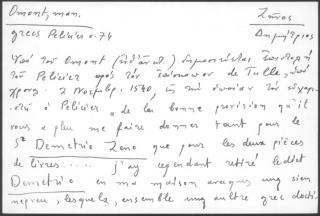 Omont, man. Ζῆνος
grecs Pelicier p. 74 Δημήτριος
Ὑπὸ τοῦ Omont δημοσιεύεται ἐπιστολὴ
τοῦ Pelicier πρὸς τὸν ἐπίσκοπον de Tulle, ὑπὸ
χρον. 2 Νοεμβρ. 1540, ἐν ᾗ τὸν
ὁ Pelicier " de la bonne provision qu'il
vous a pleu me faire donner tant pour le
Sr Demetrio Zeno que pour les deux pièces
de livres..... j'ay cependant retiré ledict
Demetrio en ma maison avecques ung sien
nepveu, lesquelz, ensemble ung aultre grec docte